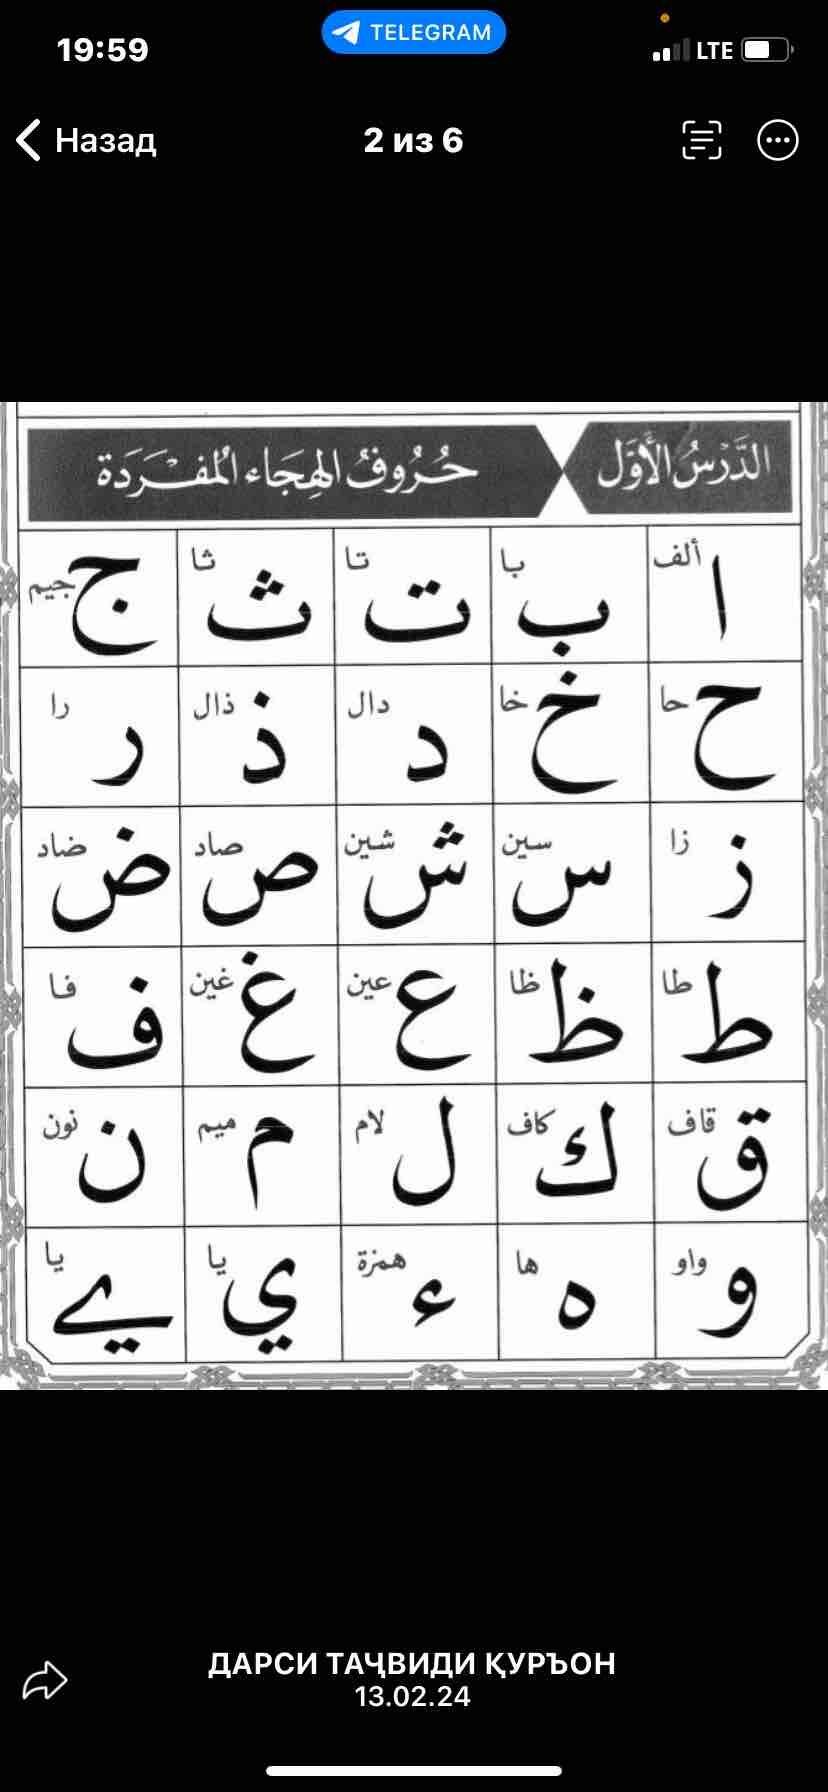 19:59
TELEGRAM
LTE
Назад
2 из 6
الدَّرْسُ الأَوَّل
حُرُوفُ الهِجَاء المُفْرَدَة
ا ألف ب با ت تا ث ثا ج جيم
ح حا خ خا د دال ذ ذال ر را
ز زا س سين ش شين ص صاد ض ضاد
ط طا ظ ظا ع عين غ غين ف فا
ق قاف ك كاف ل لام م ميم ن نون
و واو ه ها ء همزة ي يا ے يا
ДАРСИ ТАҶВИДИ ҚУРЪОН
13.02.24